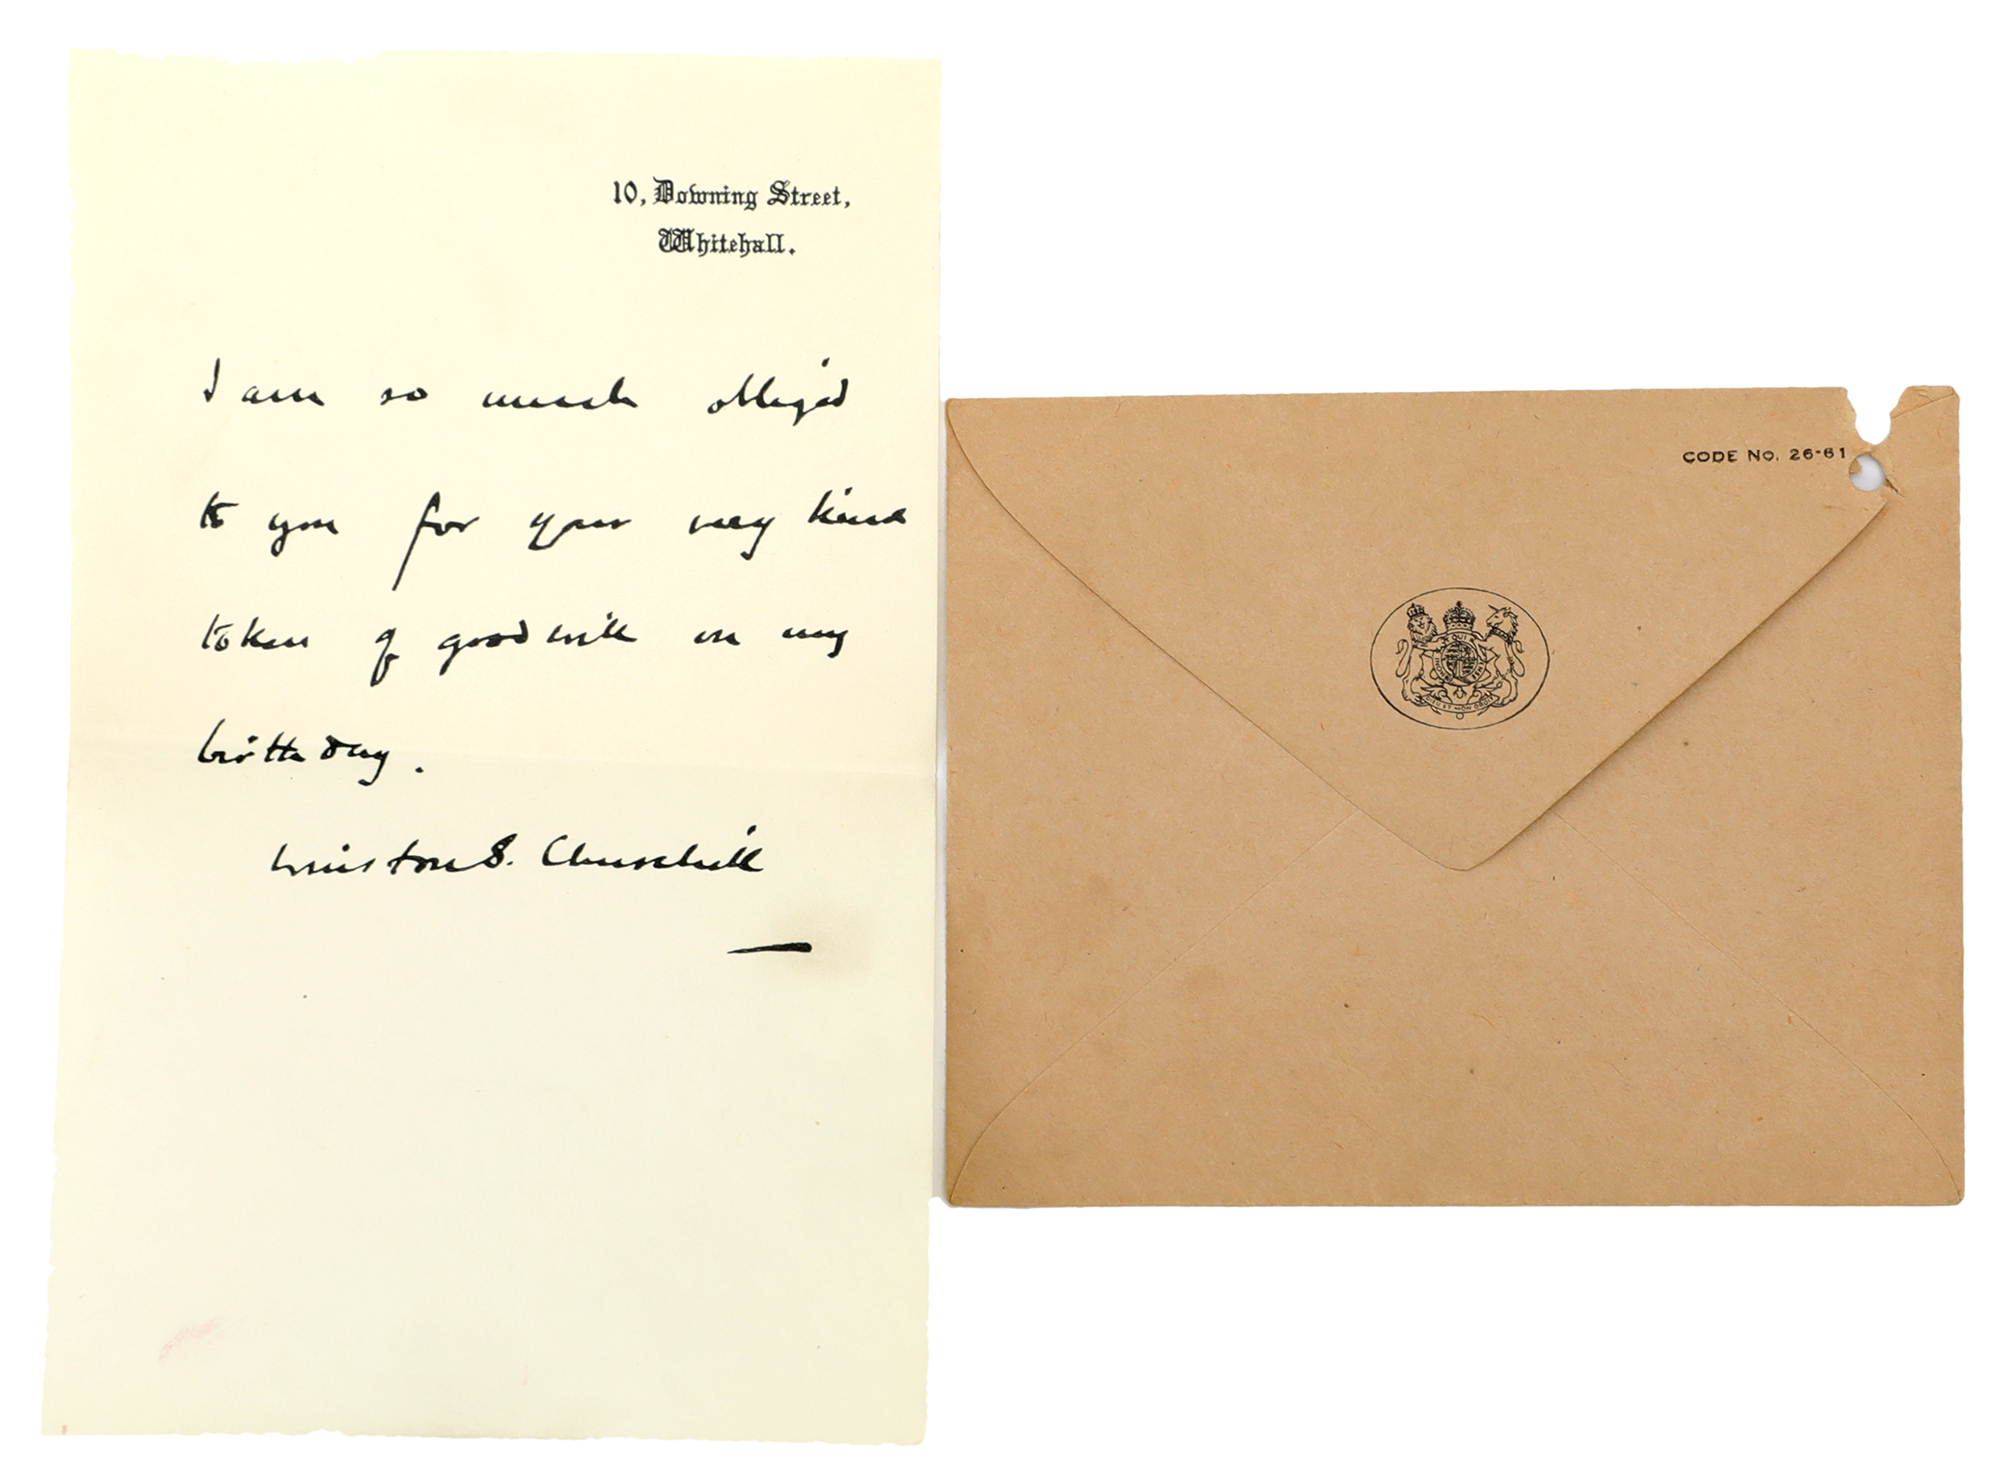 10, Downing Street,
Whitehall.
I am so much obliged
to you for your very kind
token of goodwill on my
birthday.
Winston S. Churchill
CODE NO. 26-61
QUI
DIEU ET MON DROIT